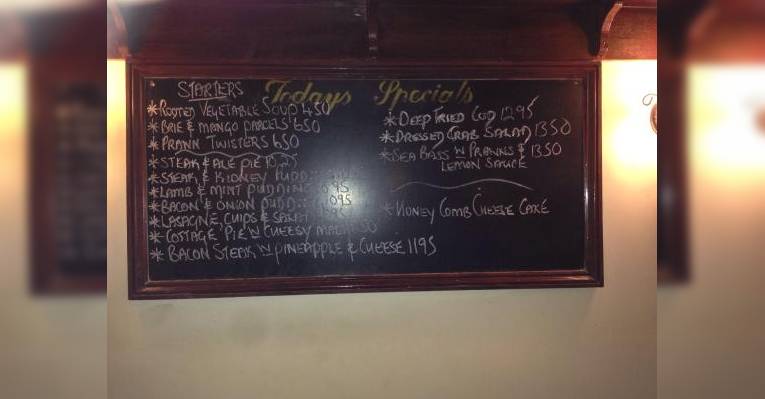 Todays Specials
STARTERS
* ROOTED VEGETABLE SOUP 4 50
* BRIE & MANGO PARCELS 6 50
* PRAWN TWISTERS 6 50
* STEAK & ALE PIE 10 95
* STEAK & KIDNEY PUDDING
* LAMB & MINT PUDDING 95
* BACON & ONION PUDD 1095
* LASAGNE CHIPS & SALAD
* COTTAGE PIE 'N' CHEESY MASH 50
* BACON STEAK 'N' PINEAPPLE & CHEESE 11 95
* DEEP FRIED COD 12 95
* DRESSED CRAB SALAD 13 50
* SEA BASS 'N' PRAWNS & 13 50
LEMON SAUCE
* HONEY COMB CHEESE CAKE